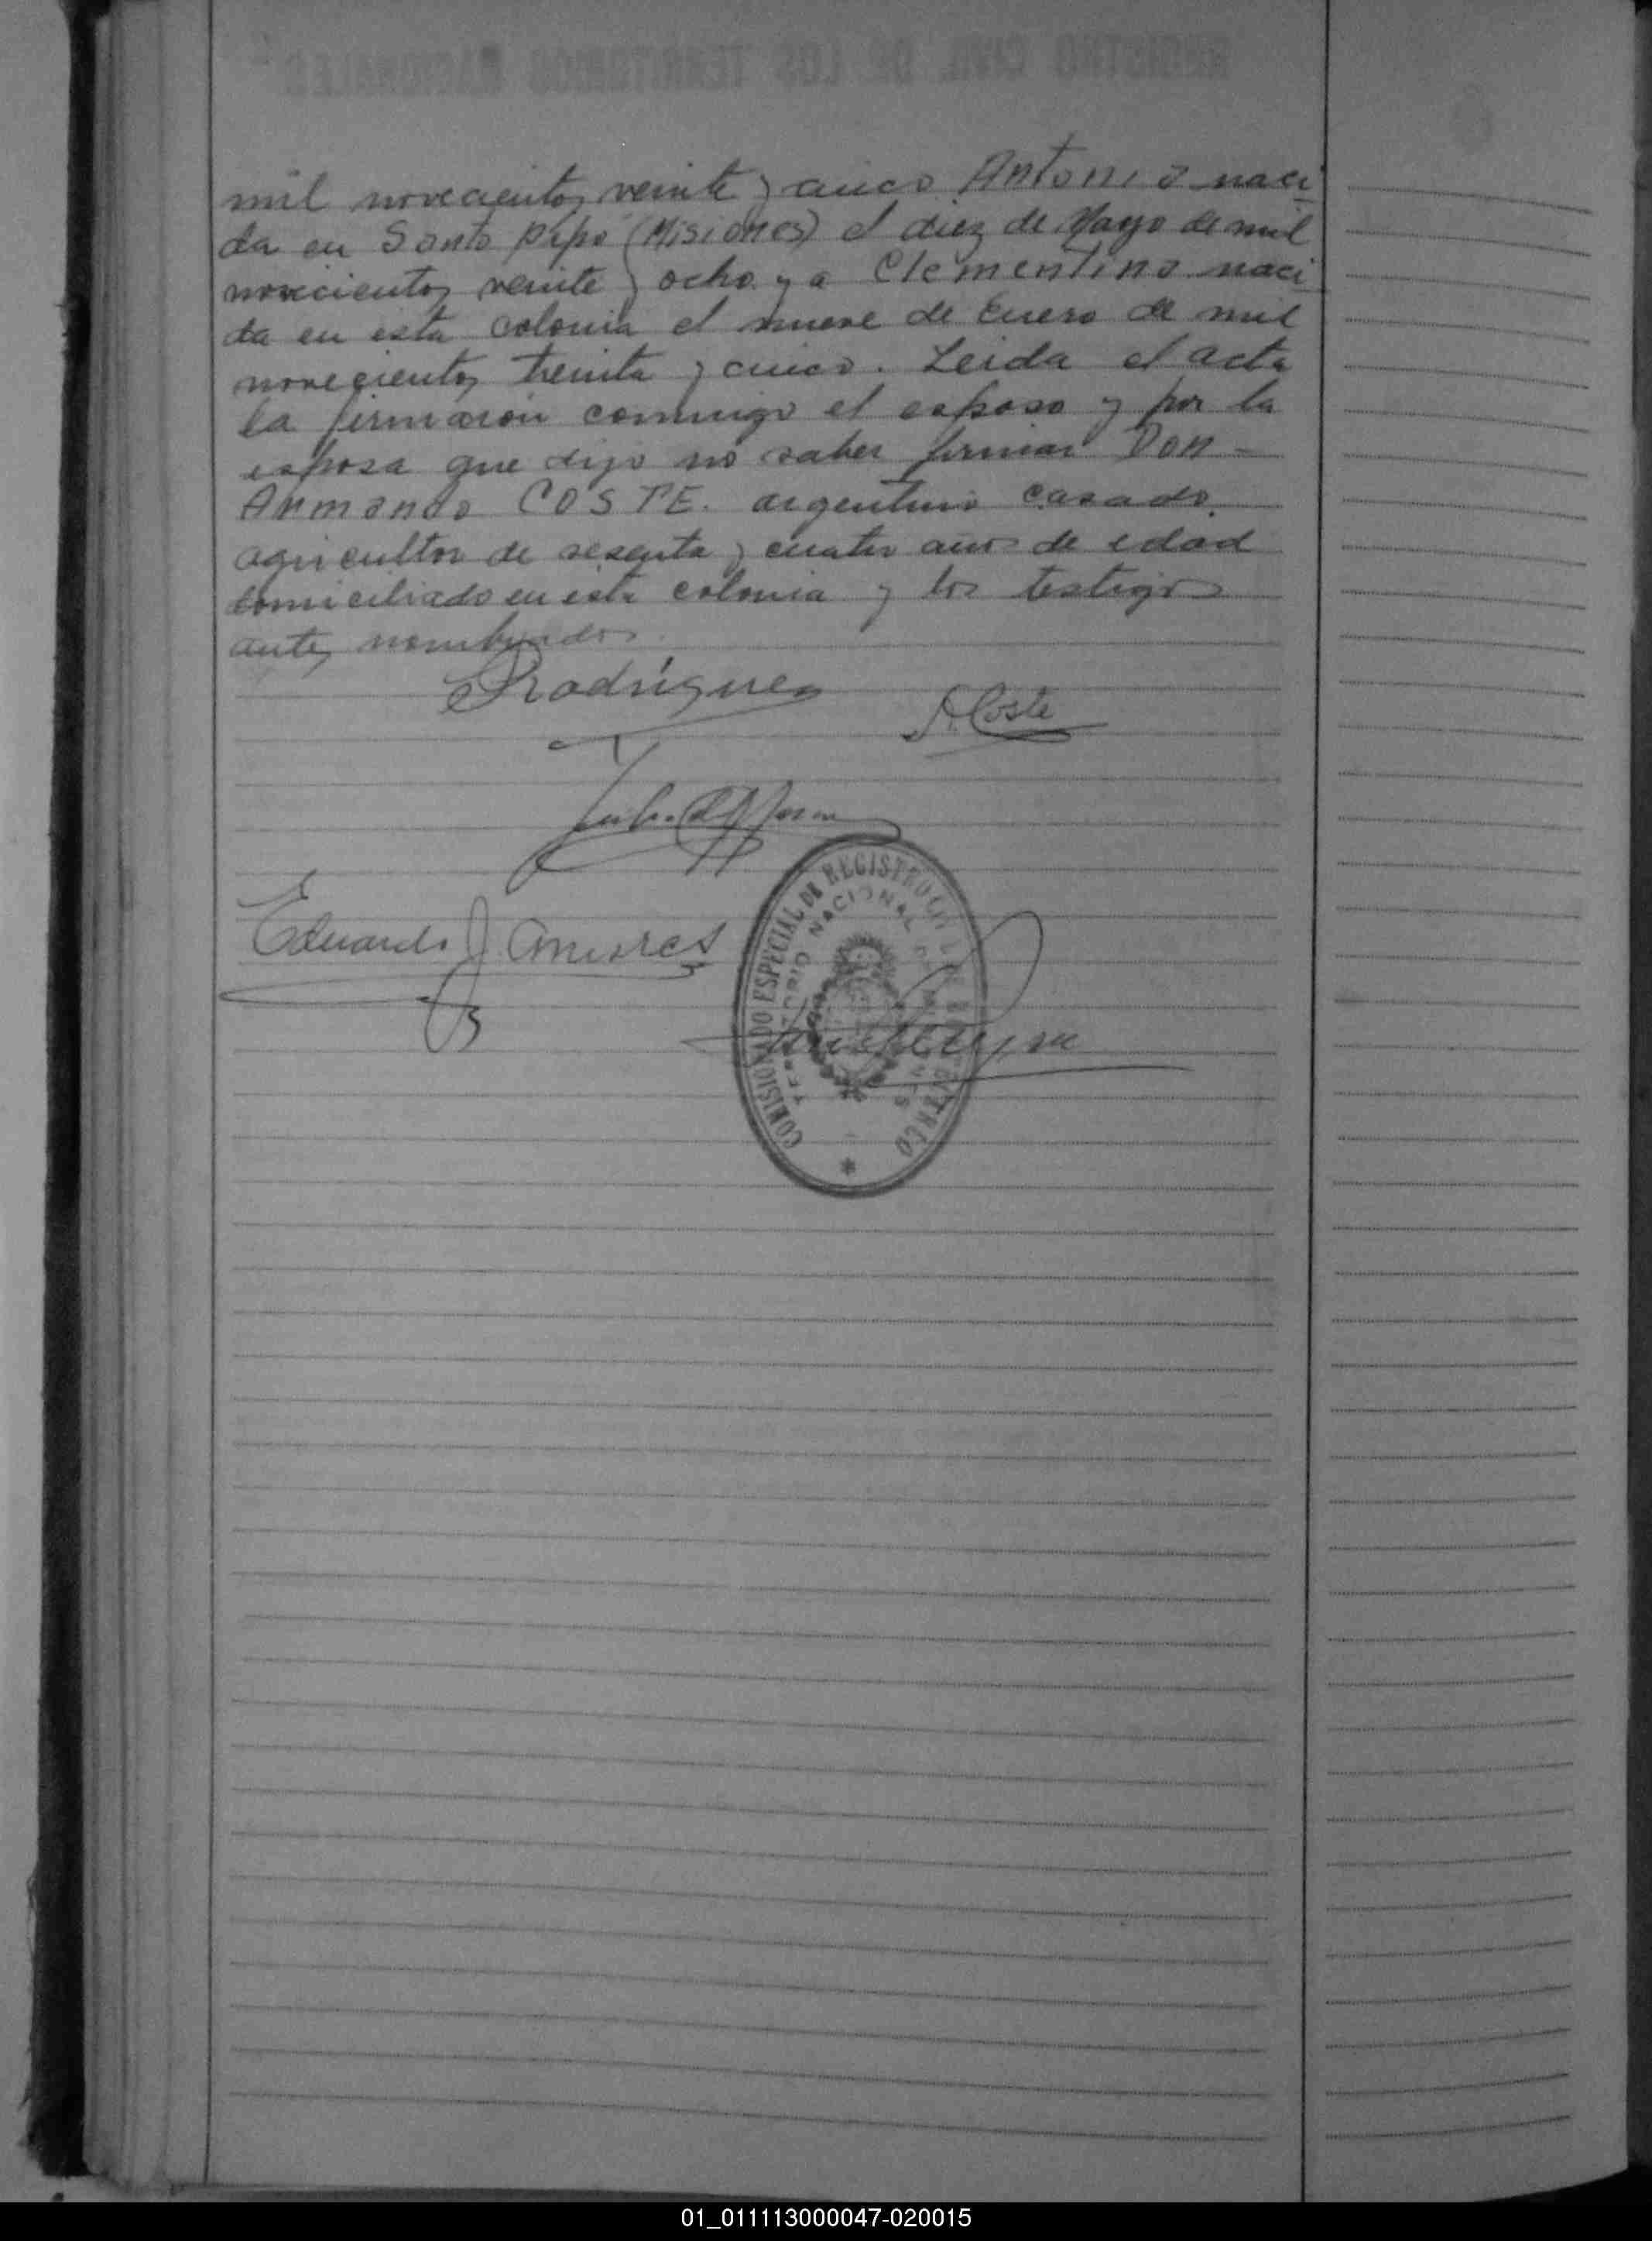 mil novecientos veinte y cinco Antonia naci
da en Santo Pipó (Misiones) el diez de Mayo de mil
novecientos veinte y ocho y a Clementina naci
da en esta colonia el nueve de Enero de mil
novecientos treinta y cinco. Leida el acta
la firmaron conmigo el esposo y por la
esposa que dijo no saber firmar Don -
Armando COSTE. argentino casado.
agricultor de sesenta y cuatro años de edad
domiciliado en esta colonia y los testigos
antes nombrados.
Rodríguez
A. Coste
Eduardo J.
COMISIONADO ESPECIAL DE REGISTRO CIVIL
TERRITORIO NACIONAL DE MISIONES
01_011113000047-020015